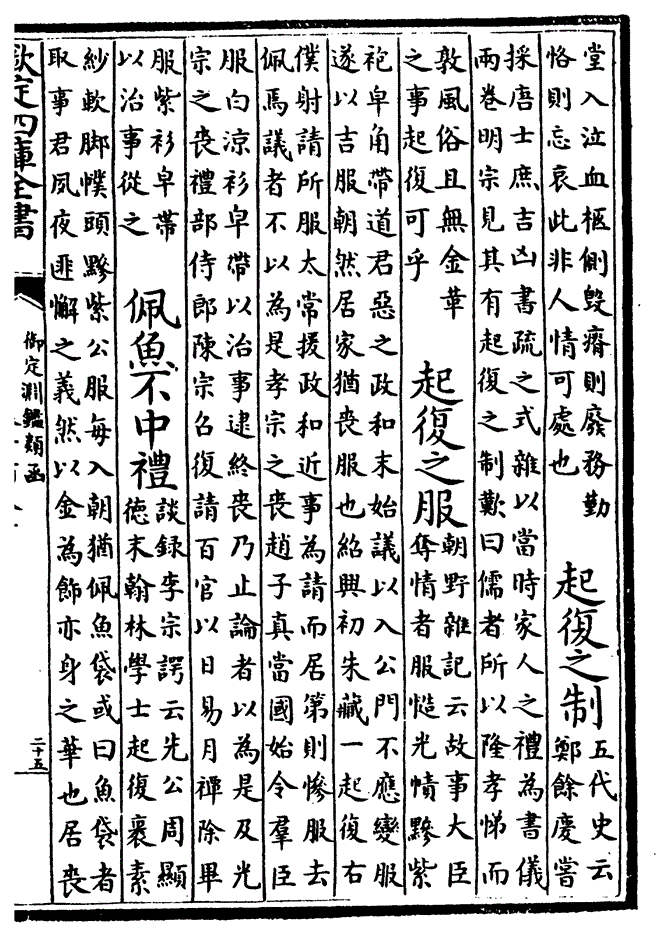 堂入泣血柩側毀瘠則廢務勤
恪則忘哀此非人情可處也
起復之制
五代史云
鄭餘慶嘗
採唐士庶吉凶書疏之式雜以當時家人之禮為書儀
兩卷明宗見其有起復之制歎曰儒者所以隆孝悌而
敦風俗且無金華
之事起復可乎
起復之服
朝野雜記云故事大臣
奪情者服慥光幘黲紫
袍皁角帶道君惡之政和末始議以入公門不應變服
遂以吉服朝然居家猶喪服也紹興初朱藏一起復右
僕射請所服太常援政和近事為請而居第則慘服去
佩焉議者不以為是孝宗之喪趙子真當國始令羣臣
服白涼衫皁帶以治事逮終喪乃止論者以為是及光
宗之喪禮部侍郎陳宗召復請百官以日易月禫除畢
服紫衫皁帶
以治事從之
佩魚不中禮
談録李宗諤云先公周顯
德末翰林學士起復裹素
紗軟脚幞頭黲紫公服每入朝猶佩魚袋或曰魚袋者
取事君夙夜匪懈之義然以金為飾亦身之華也居喪
欽定四庫全書
御定淵鑑類函
二十五